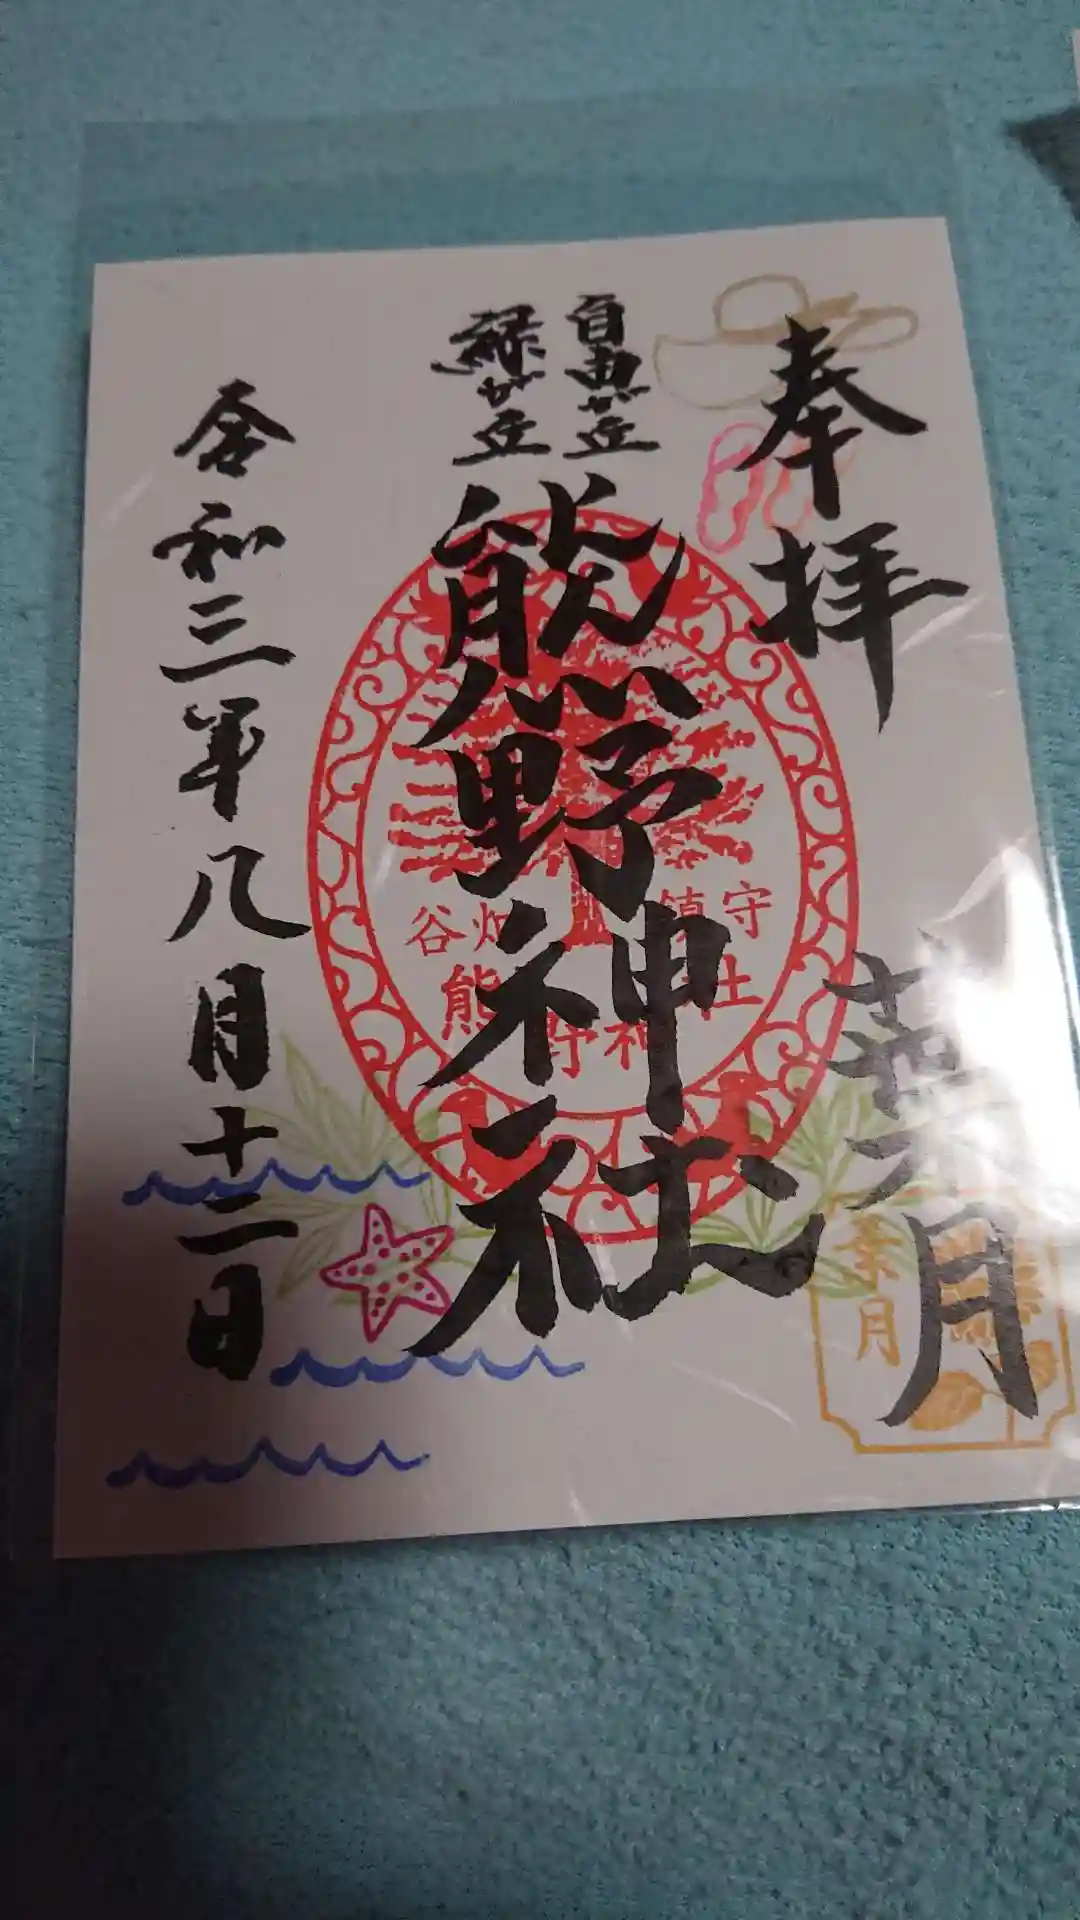 奉拝
葉月
自由が丘
緑が丘
熊野神社
令和三年八月十二日
谷畑
鎮守
熊野神社
葉月